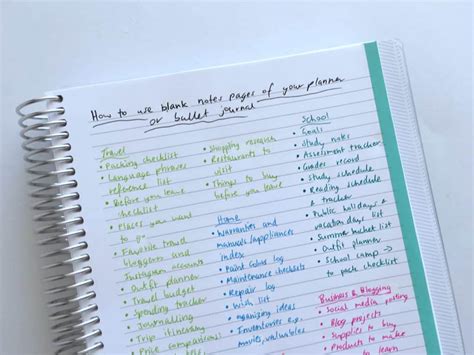 How to use blank notes pages of your planner
or bullet journal
Travel
• Packing checklist
• Language phrases
reference list
• Before you leave
checklist
• Places you want
to go
• Favorite travel
bloggers &
Instagram accounts
• Outfit planner
• Travel budget
• Spending tracker
• Journalling
• Trip itinerary
• Price comparisons
• Shopping research
• Restaurants to
visit
• Things to buy
before you leave
Home
• Warranties and
manuals/appliances
index
• Paint color log
• Maintenance checklists
• Repair log
• Wish list
• Organizing ideas
• Inventories e.g.
movies, valuables
School
• Goals
• Study notes
• Assessment tracker
• Grades record
• Study schedule
• Reading schedule
& tracker
• Public holidays &
vacation days list
• Summer bucket list
• Outfit planner
• School camp →
to pack checklist
Business & Blogging
• Social media posting
• Blog projects
• Supplies to buy
• Products to make
to learn